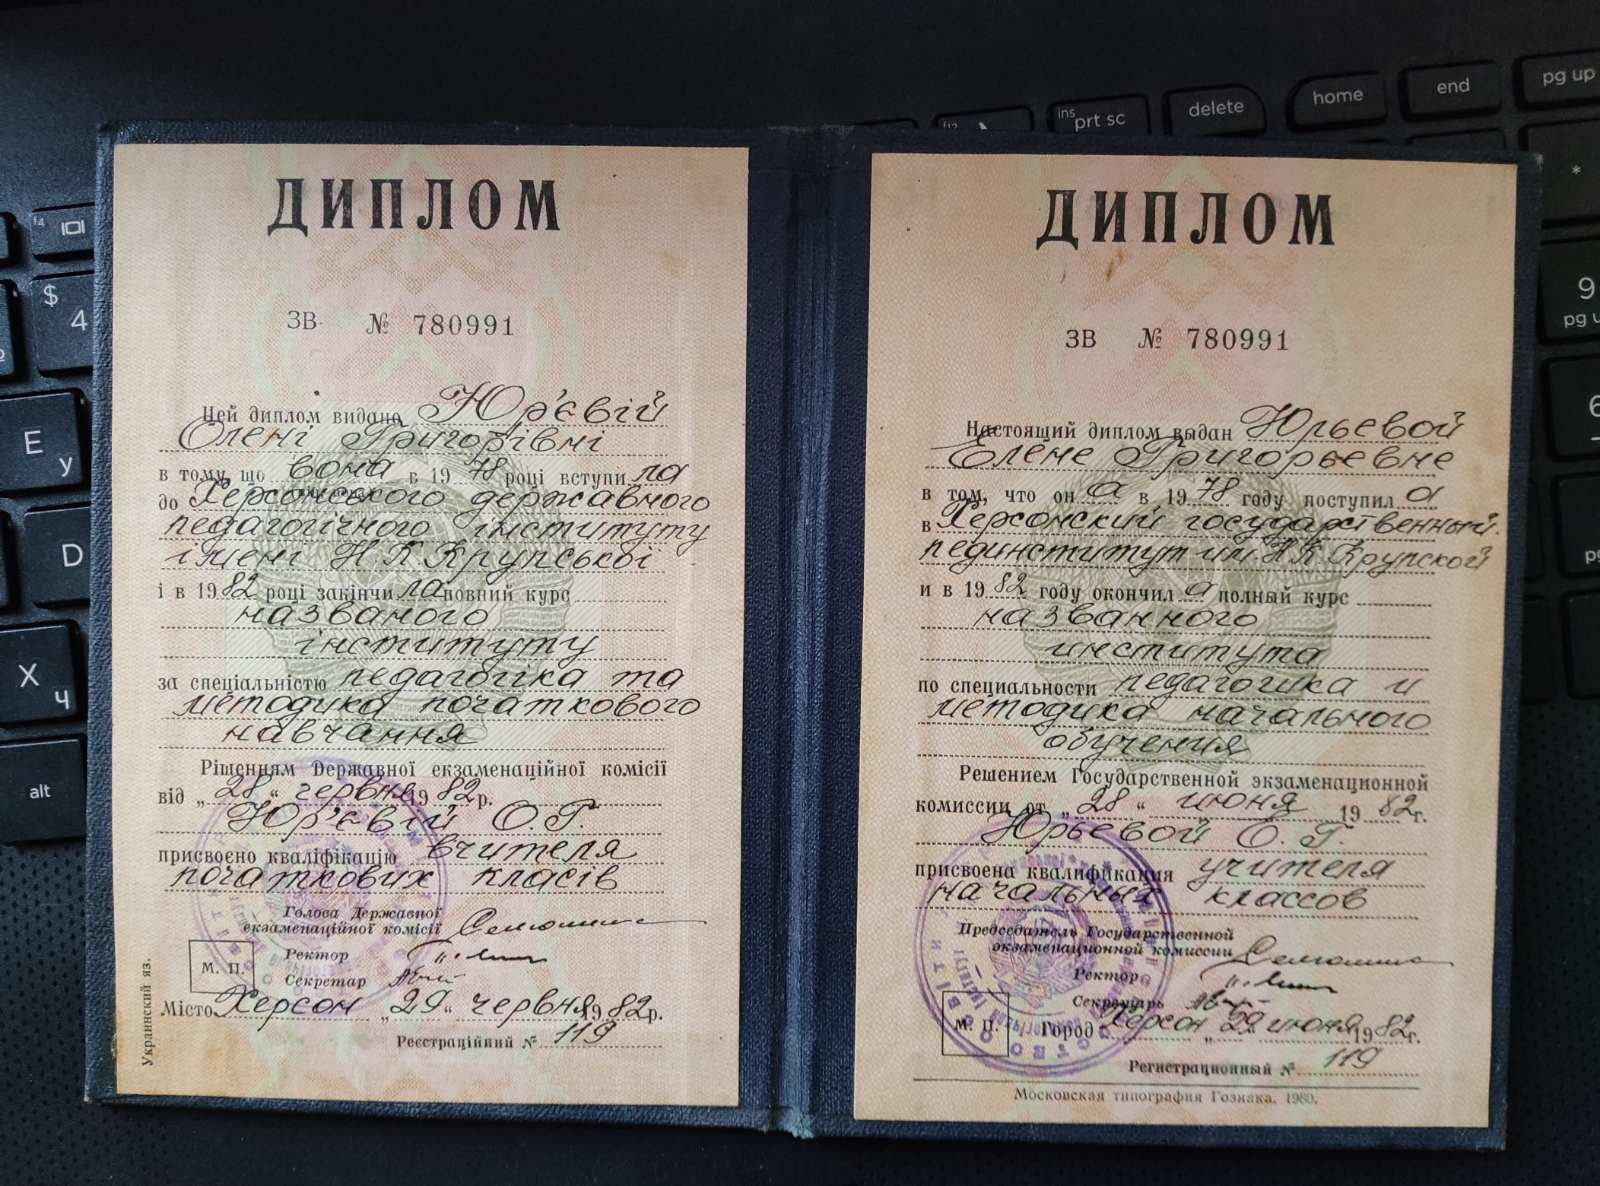 ДИПЛОМ
ЗВ № 780991
Цей диплом видано Юр'євій
Олені Григорівні
в тому, що вона в 1978 році вступила
до Херсонського державного
педагогічного інституту
імені Н.К.Крупської
і в 1982 році закінчила повний курс
названого
інституту
за спеціальністю педагогіка та
методика початкового
навчання
Рішенням Державної екзаменаційної комісії
від „28“ червня 1982р.
Юр'євій О.Г.
присвоєно кваліфікацію вчителя
початкових класів
Голова Державної
екзаменаційної комісії
Ректор
М. П.
Секретар
Місто Херсон „29“ червня 1982р.
Реєстраційний № 119
Украинский яз.
ДИПЛОМ
ЗВ № 780991
Настоящий диплом выдан Юрьевой
Елене Григорьевне
в том, что она в 1978 году поступила
в Херсонский государственный
пединститут им. Н.К.Крупской
и в 1982 году окончила полный курс
названного
института
по специальности педагогика и
методика начального
обучения
Решением Государственной экзаменационной
комиссии от „28“ июня 1982г.
Юрьевой О. Г.
присвоена квалификация учителя
начальных классов
Председатель Государственной
экзаменационной комиссии
Ректор
Секретарь
М. П.
Город Херсон „29 июня 1982г.
Регистрационный № 119
Московская типография Гознака. 1980.
ins prt sc
delete
home
end
pg up
f4
$ 4
E у
D
X ч
alt
*
9
pg u
6